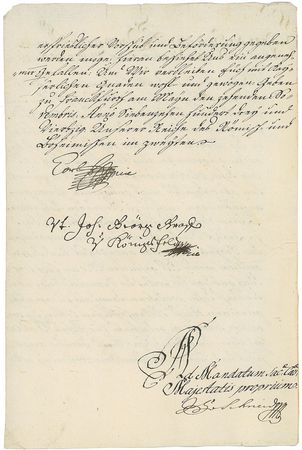 erfreulicher Vorschub und Beförderung gegeben
werden möge. Hieran beschiehet Uns ein angeneh-
mer Gefallen. Und Wir verbleiben Euch mit Kay-
serlichen Gnaden wohl und gewogen. Geben
zu Franckfurt am Mayn den zehenden
vembris. Anno Siebenzehen hundert drey und
Viertzig Unserer Reiche des Römisch. und
Böheimischen im zweyten.
Carl
Vt. Joh. Georg Graf
v. Königsfeld
Ad Mandatum Sac. Caes.
Majestatis proprium